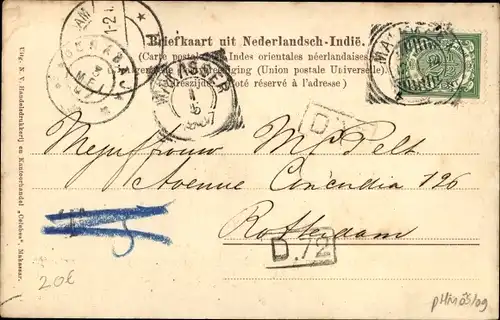 Briefkaart uit Nederlandsch-Indië.
(Carte postale des Indes orientales néerlandaises.)
Algemeene Postvereeniging (Union postale Universelle).
Adreszijde. (Côté réservé à l'adresse)
MAKASSER
D.12
Mejuffrouw M. Pelt
Avenue Concordia 126
Rotterdam
D.12
T
20€
Uitg. N. V. Handelsdrukkerij en Kantoorhandel „Celebes", Makassar.